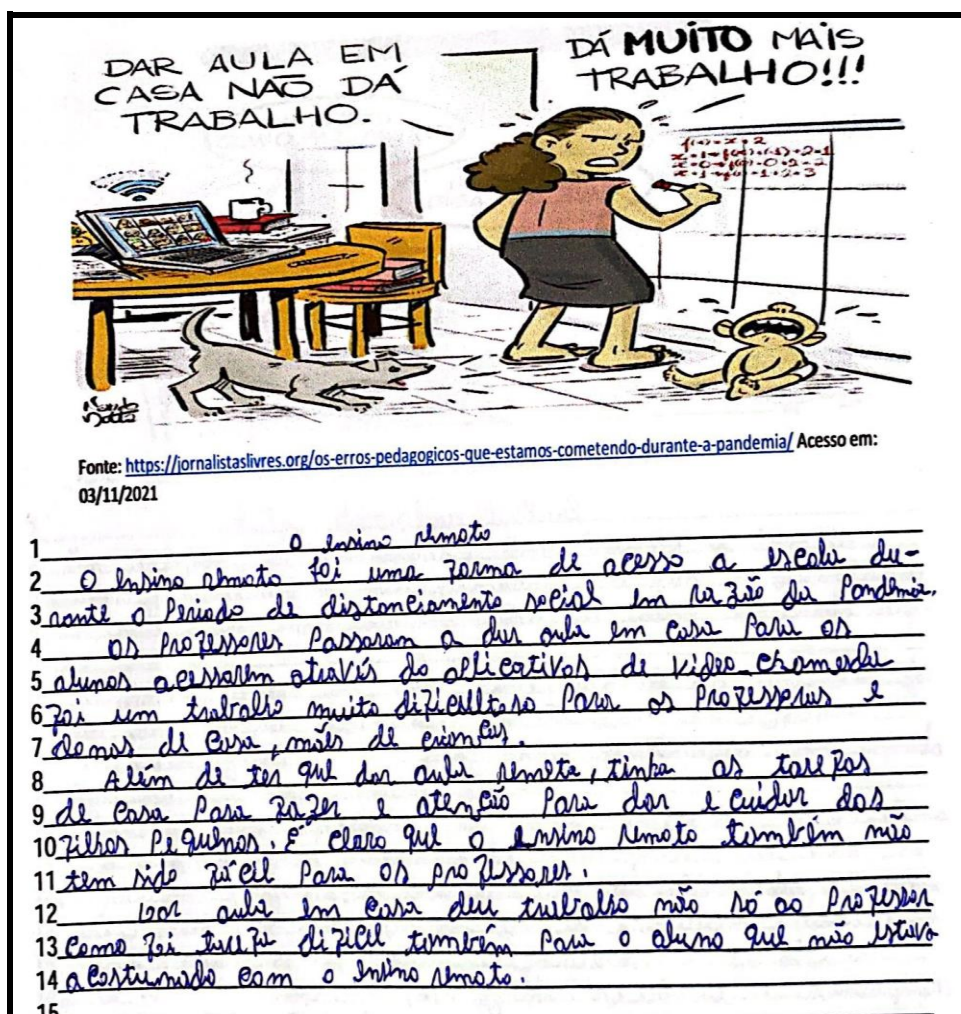 DAR AULA EM
CASA NÃO DÁ
TRABALHO.
DÁ MUITO MAIS
TRABALHO!!!
f(x)=x+2
x=-1→f(-1)=(-1)+2=1
x=0→f(0)=0+2=2
x=1→f(1)=1+2=3
Fonte: https://jornalistaslivres.org/os-erros-pedagogicos-que-estamos-cometendo-durante-a-pandemia/ Acesso em:
03/11/2021
1 O ensino remoto
2 O ensino remoto foi uma forma de acesso a escola du-
3 rante o Periodo de distanciamento social em razão da Pandemia.
4 Os Professores Passaram a dar aula em casa Para os
5 alunos acessarem através do aplicativos de video chamada
6 foi um trabalho muito dificultoso Para os Professoras e
7 donas de casa, mães de crianças.
8 Além de ter que dar aula remota, tinha as tarefas
9 de casa Para fazer e atenção Para dar e cuidar dos
10 filhos Pequenos. É claro que o ensino remoto também não
11 tem sido fácil Para os professores.
12 Dar aula em casa deu trabalho não só ao Professor
13 como foi tarefa dificil também Para o aluno que não estava
14 acostumado com o ensino remoto.
15